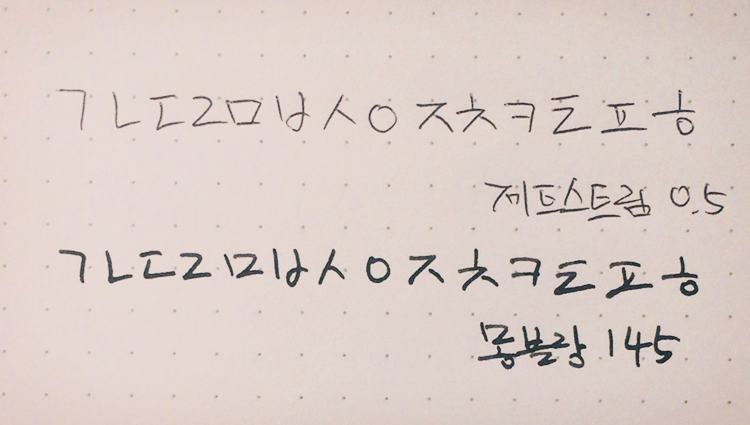 ㄱㄴㄷㄹㅁㅂㅅㅇㅈㅊㅋㅌㅍㅎ
제트스트림 0.5
ㄱㄴㄷㄹㅁㅂㅅㅇㅈㅊㅋㅌㅍㅎ
몽블랑 145